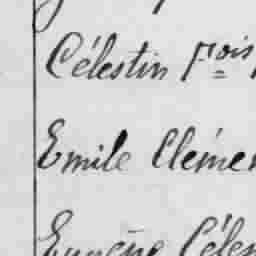 Célestin Fois
Emile Clémen
Eugène Céles